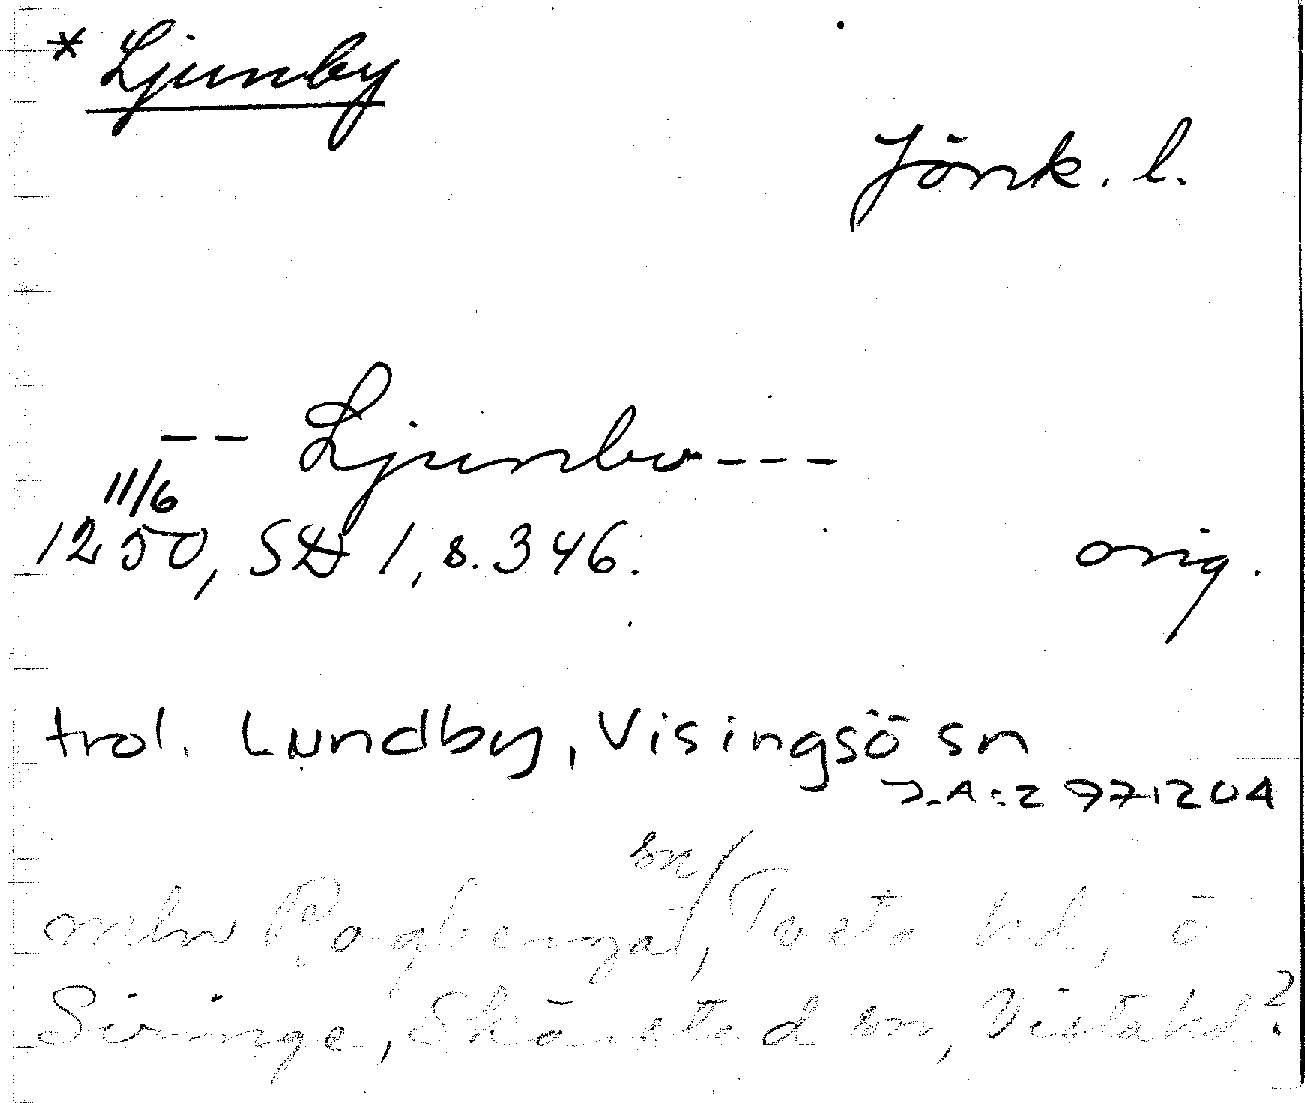 * Ljunby
Jönk. l.
-- Ljunbo---
11/6
1250, SD 1, s. 346.
orig.
trol. Lundby, Visingsö sn
J.A:2 971204
sn
mln Tveta hd, o
Siringe, Skärstad sn, Vista hd?